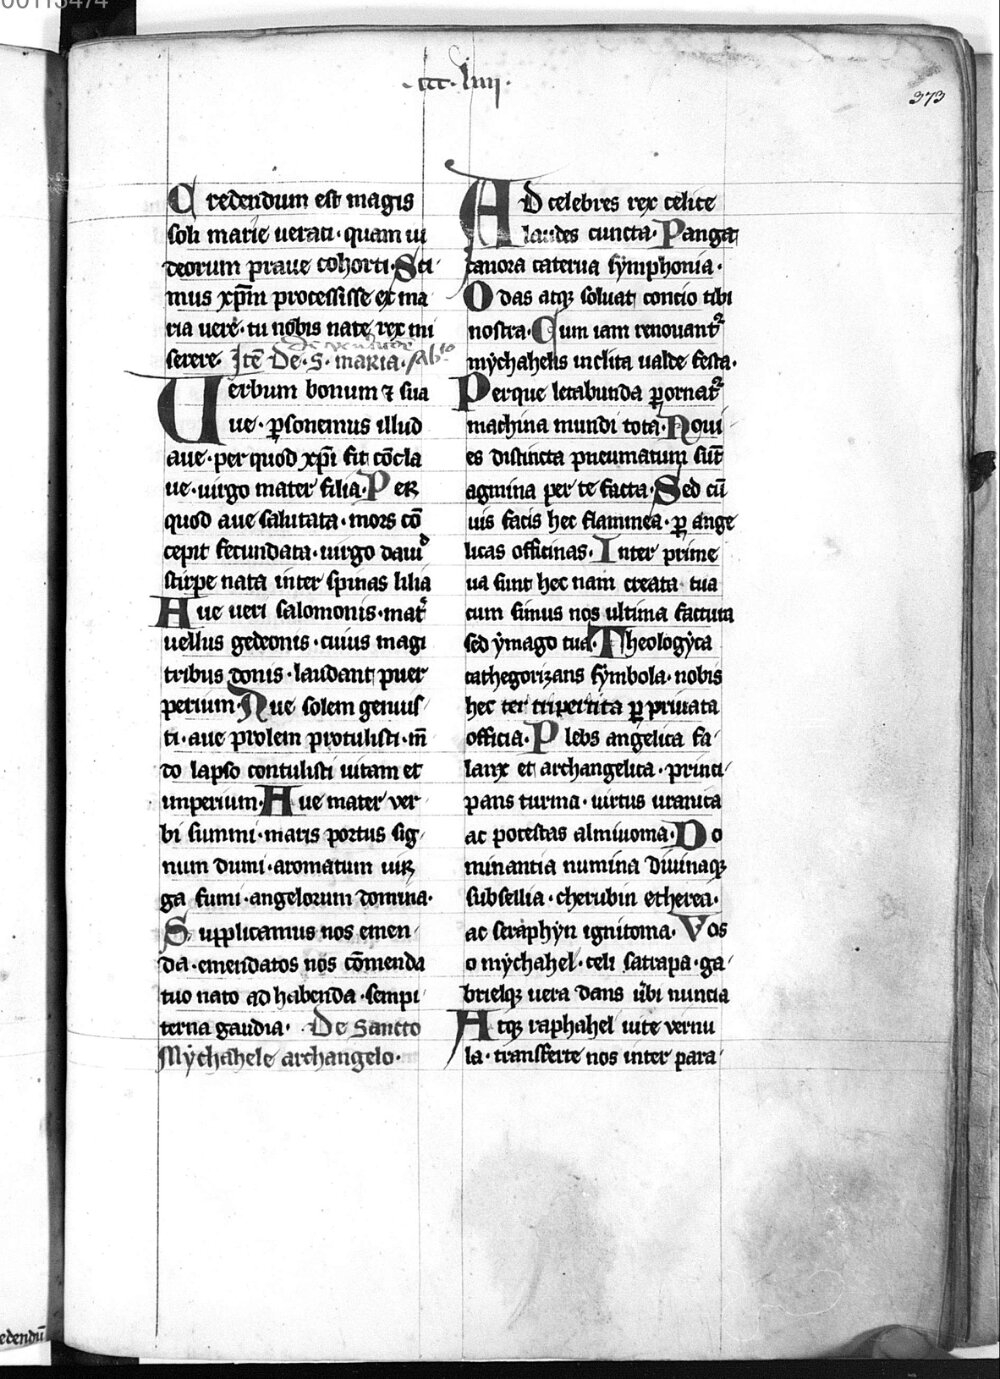 00113474
·ccc·liiii·
373
Credendum est magis
soli marie ueraci· quam iu
deorum praue cohorti· Sci
mus xp̄m processisse ex ma
ria uere· tu nobis nate rex mi
serere. Itē De· S· maria·
Uerbum bonum ⁊ sua
ue· ꝑsonemus illud
aue· per quod xp̄i fit cōcla
ue· uirgo mater filia· Per
quod aue salutata· mors cō
cepit fecundata· uirgo dauid
stirpe nata inter spinas lilia
Aue ueri salomonis· mat̄
uellus gedeonis· cuius magi
tribus donis· laudant puer
perium· Aue solem genuis
ti· aue prolem protulisti· m̄
do lapso contulisti uitam et
imperium· Aue mater ver
bi summi· maris portus sig
num dumi· aromatum uir
ga fumi· angelorum domina·
Supplicamus nos emen
da· emendatos nos cōmenda
tuo nato ad habenda· sempi
terna gaudia· De sancto
Mychahele archangelo·
AD celebres rex celice
laudes cuncta· Pangat
canora caterua symphonia·
Odas atqꝫ soluat concio tibi
nostra· Cum iam renouantᷣ
mychahelis inclita ualde festa·
Perque letabunda ꝑornatᷣ
machina mundi tota· Noui
es distincta pneumatum sūt
agmina per te facta· Sed cū
uis facis hec flammea· ꝑ ange
licas officinas· Inter prime
ua sunt hec nam creata tua
cum simus nos ultima factura
sed ymago tua· Theologyca
cathegorizans symbola· nobis
hec ter tripertita ꝑ priuata
officia· Plebs angelica fa
lanx et archangelica· princi
pans turma· uirtus uranica
ac potestas almiuoma· Do
minantia numina diuinaqꝫ
subsellia· cherubin etherea·
ac seraphyn ignitoma· Vos
o mychahel· celi satrapa· ga
brielqꝫ uera dans u̇bi nuncia
Atqꝫ raphahel uite vernu
la· transferte nos inter para
edendū